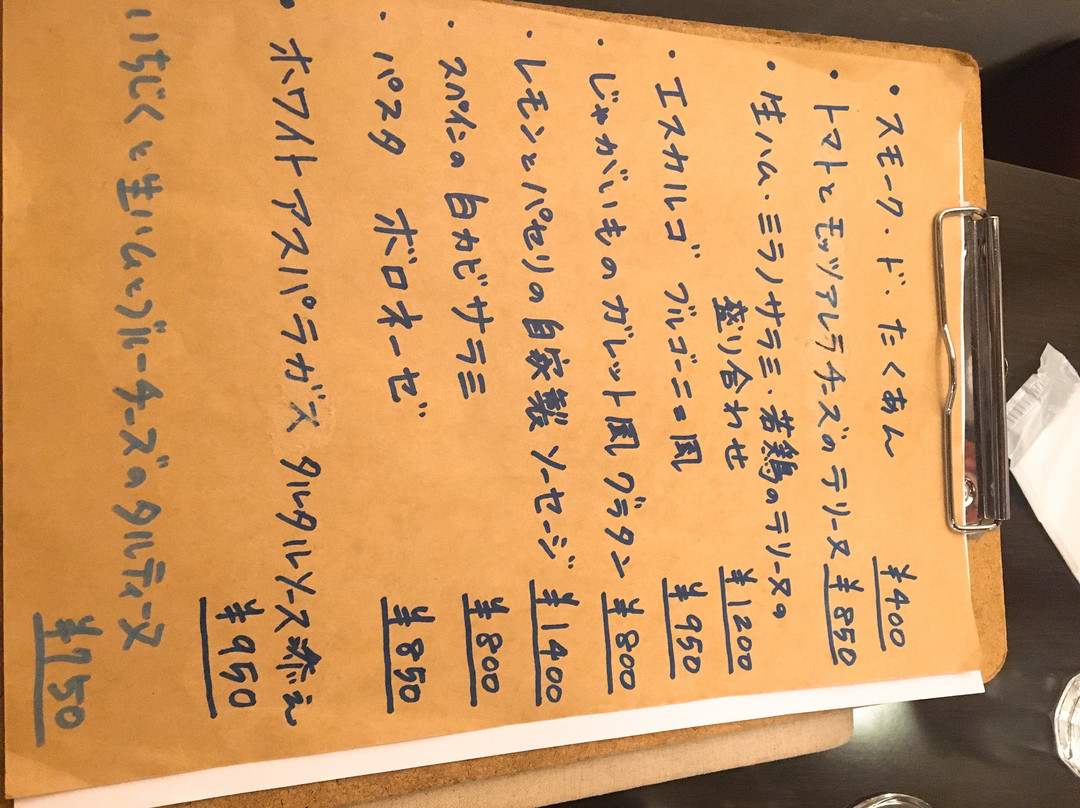 ・スモーク・ド・たくあん ¥400
・トマトとモッツアレラチーズのテリーヌ ¥850
・生ハム・ミラノサラミ・若鶏のテリーヌの
盛り合わせ ¥1200
・エスカルゴ ブルゴーニュ風 ¥950
・じゃがいものガレット風グラタン ¥800
・レモンとパセリの自家製ソーセージ ¥1400
・スペインの白カビサラミ ¥800
・パスタ ボロネーゼ ¥850
・ホワイトアスパラガス タルタルソース添え
¥950
いちじくと生ハムとブルーチーズのタルティーヌ
¥750